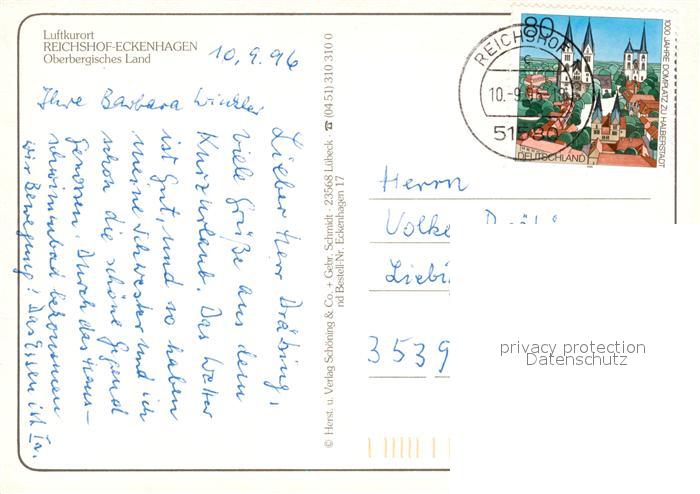 Luftkurort
REICHSHOF-ECKENHAGEN
Oberbergisches Land
10.9.96
Lieber Herr Dräbing,
viele Grüße aus dem
Kurzurlaub. Das Wetter
ist gut, und so haben
meine Schwester und ich
schon die schöne Gegend
genossen. Durch das Haus-
schwimmbad bekommen
wir Bewegung! Das Essen ist Ia.
Ihre Barbara Winkler
© Herst. u. Verlag Schöning & Co. + Gebr. Schmidt · 23568 Lübeck · ☎ (04 51) 310 310 0
nd Bestell-Nr. Eckenhagen 17
REICHSHOF
10.-9.96
51580
80
1000 JAHRE DOMPLATZ ZU HALBERSTADT
DEUTSCHLAND
Herrn
Volke
Liebi
3539
privacy protection
Datenschutz